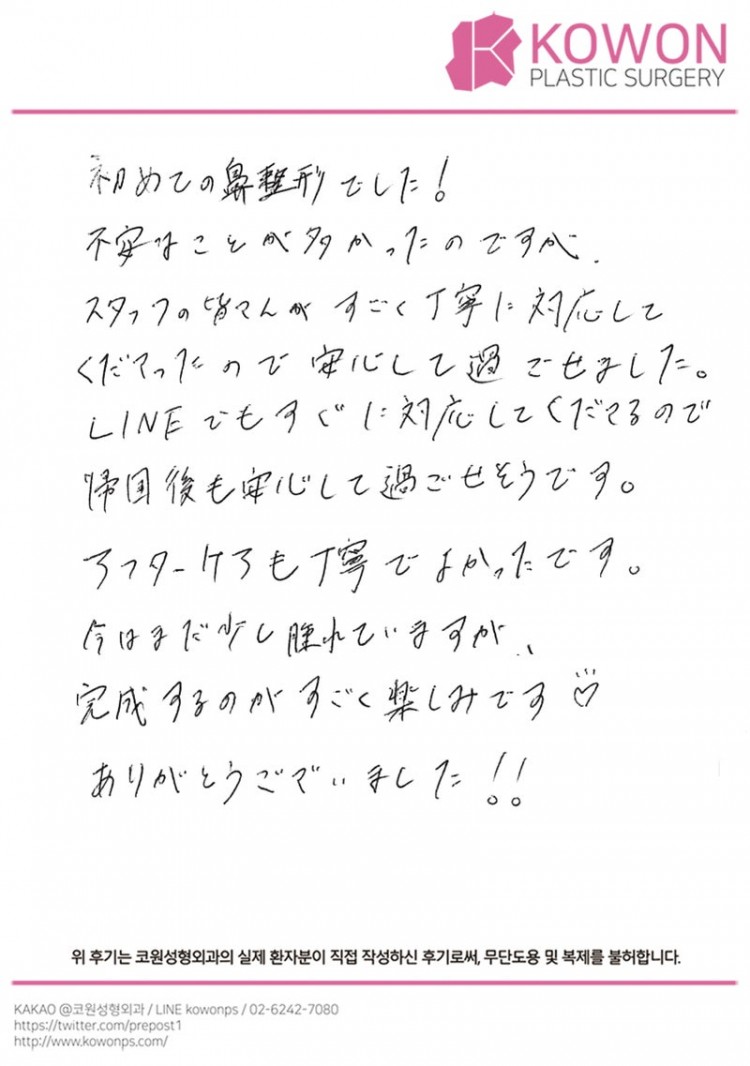 KOWON
PLASTIC SURGERY
初めての鼻整形でした!
不安なことが多かったのですが、
スタッフの皆さんがすごく丁寧に対応して
くださったので安心して過ごせました。
LINEでもすぐに対応してくださるので
帰国後も安心して過ごせそうです。
アフターケアも丁寧でよかったです。
今はまだ少し腫れていますが、
完成するのがすごく楽しみです♡
ありがとうございました!!
위 후기는 코원성형외과의 실제 환자분이 직접 작성하신 후기로써, 무단도용 및 복제를 불허합니다.
KAKAO @코원성형외과 / LINE kowonps / 02-6242-7080
https://twitter.com/prepost1
http://www.kowonps.com/